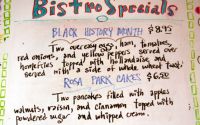 Bistro Specials
BLACK HISTORY MONTH $8.95
Two overeasy eggs, ham, tomatoes,
red onions, and yellow peppers served over
homefries topped with hollandaise, and
served with a side of whole wheat toast
ROSA PARK CAKES $6.50
Two pancakes filled with apples
walnuts, raisins, and cinnamon topped with
powdered sugar and whipped cream.